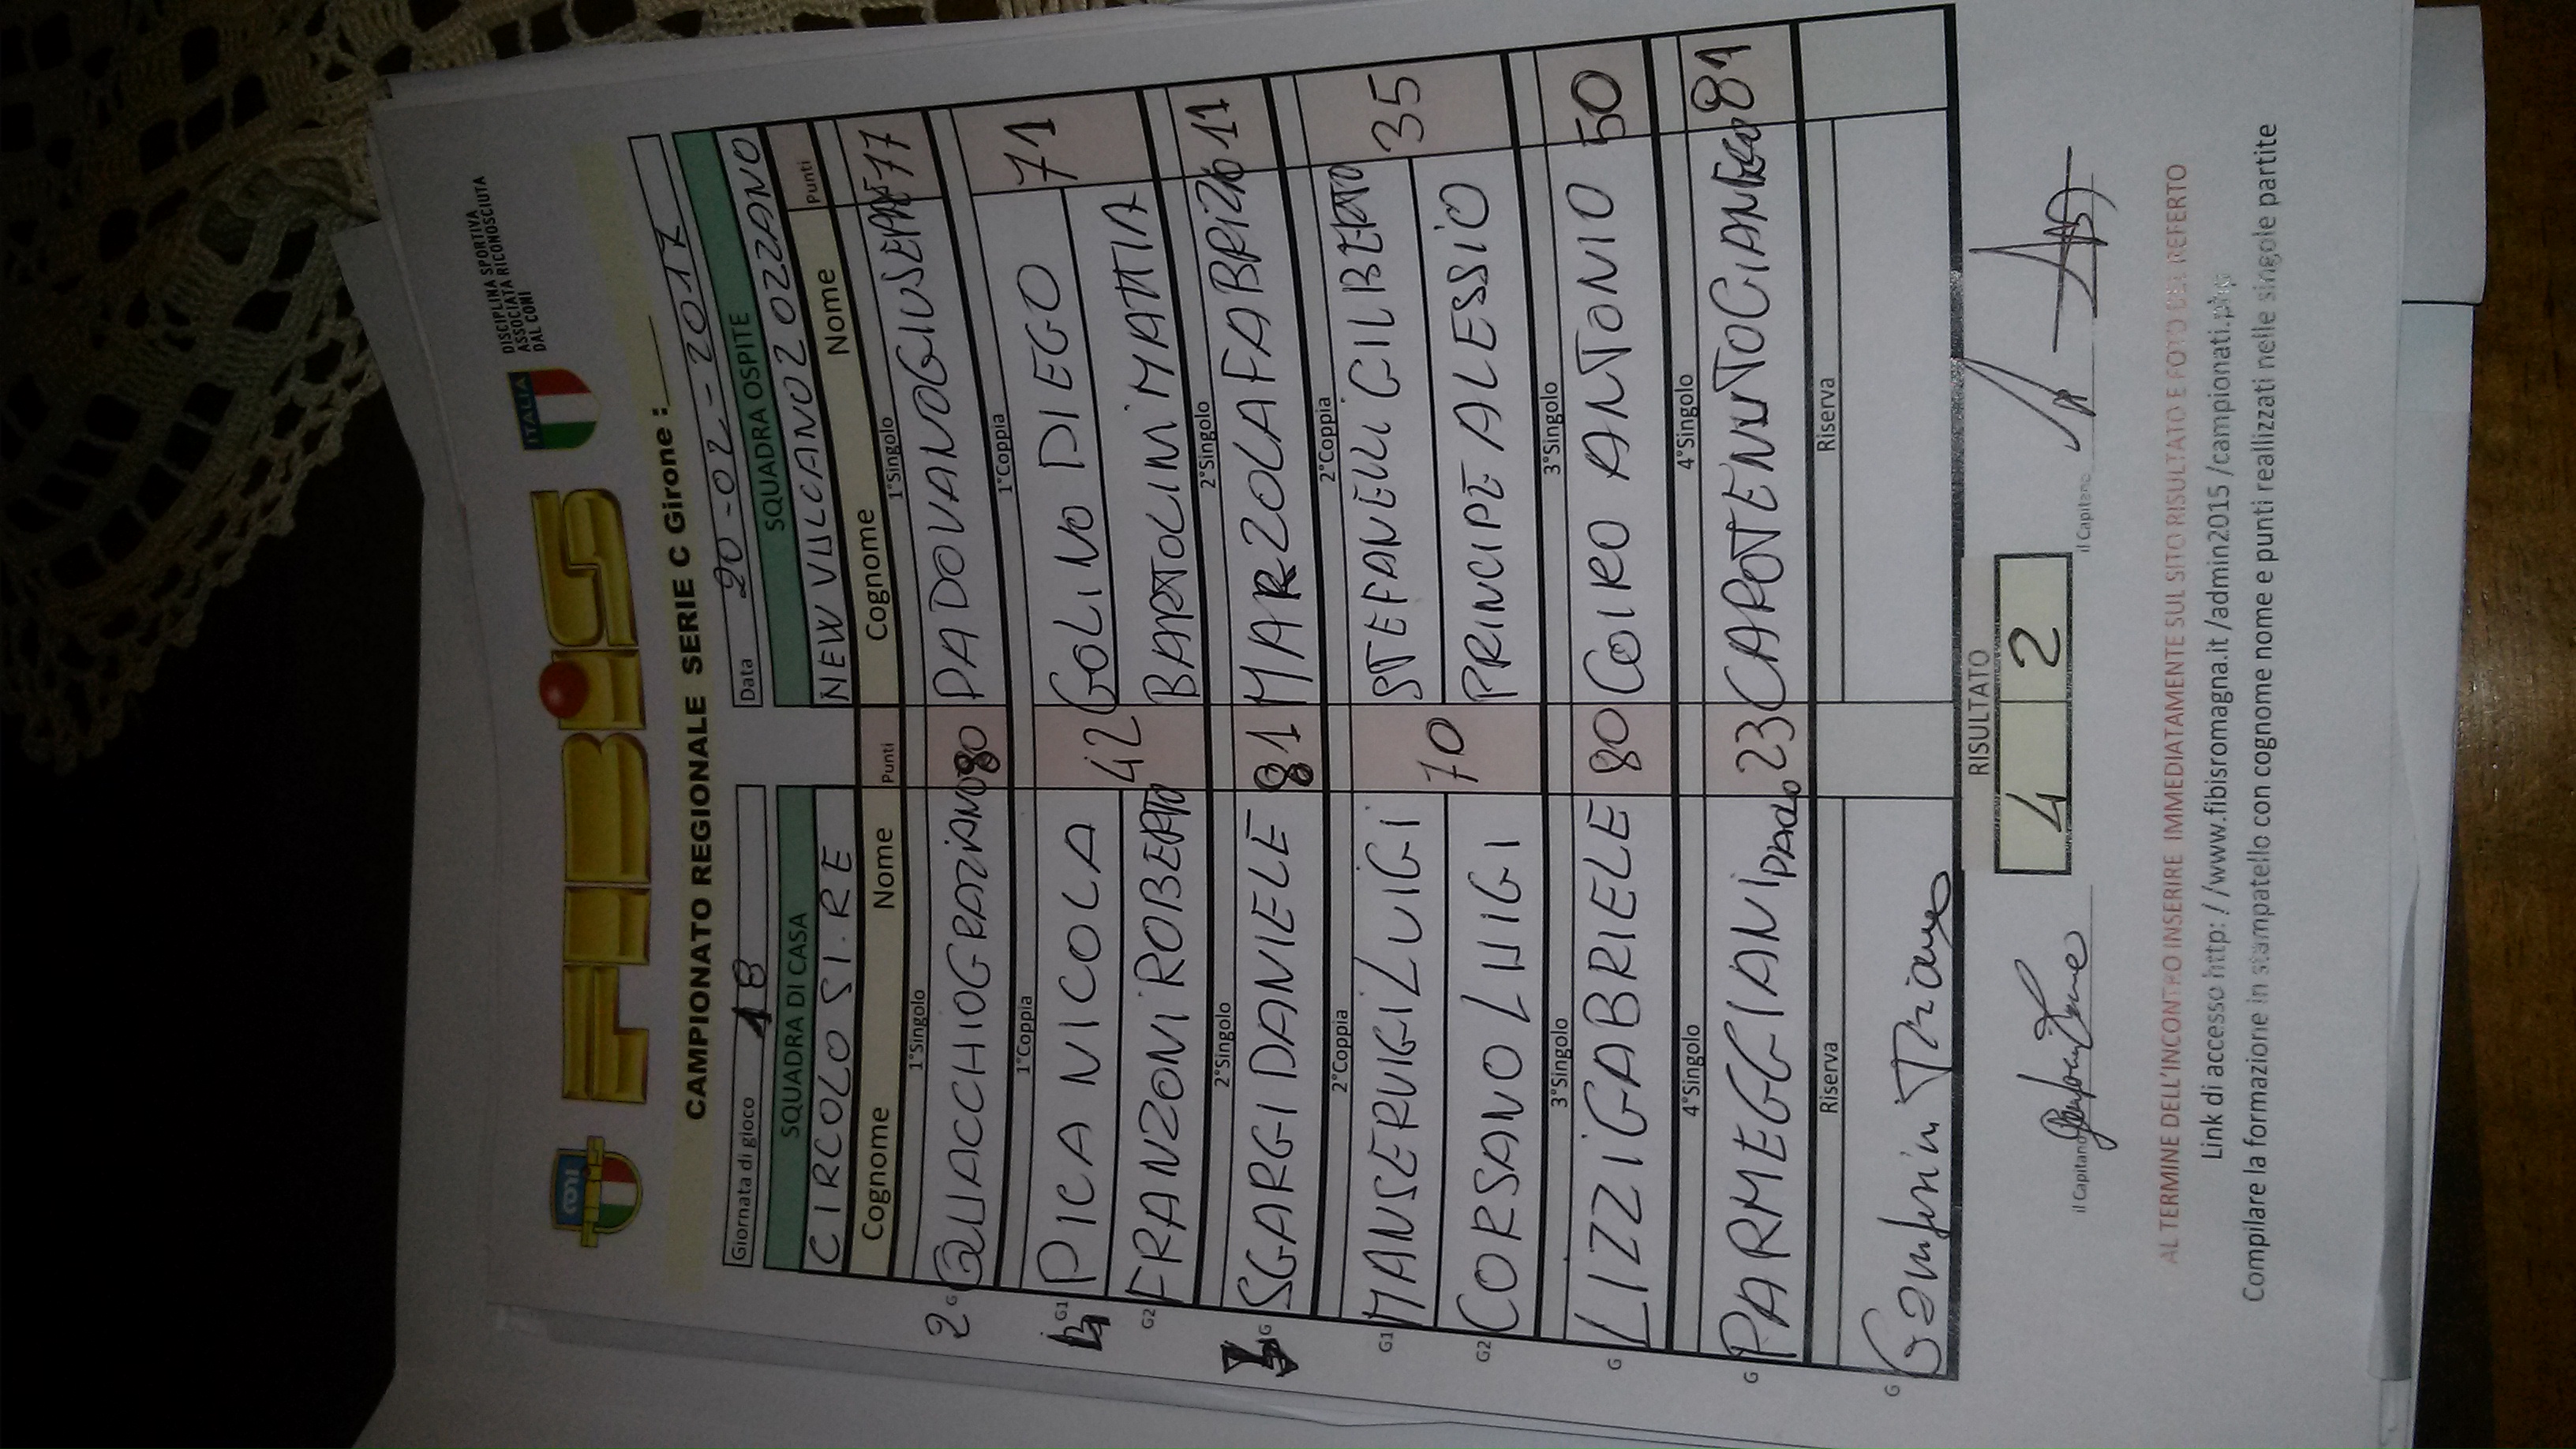 CONI
FIBiS
ITALIA
DISCIPLINA SPORTIVA
ASSOCIATA RICONOSCIUTA
DAL CONI
CAMPIONATO REGIONALE SERIE C Girone :
Giornata di gioco 1B Data 20-02-2017
SQUADRA DI CASA SQUADRA OSPITE
CIRCOLO SI.RE NEW VULCANO 2 OZZANO
Cognome Nome Punti Cognome Nome Punti
1°Singolo 1°Singolo
2 G QUACCHIO GRAZIANO 80 PADOVANO GIUSEPPE 77
1°Coppia 1°Coppia
G1 PICA NICOLA 42 GOLINO DIEGO 71
G2 FRANZONI ROBERTO BARTOLINI MATTIA
2°Singolo 2°Singolo
G SGARGI DANIELE 81 MARZOLA FABRIZIO 11
2°Coppia 2°Coppia
G1 MANSERVIGI LUIGI 70 STEFANELLI GILBERTO 35
G2 CORSANO LUIGI PRINCIPE ALESSIO
3°Singolo 3°Singolo
G LIZZI GABRIELE 80 COIRO ANTONIO 50
4°Singolo 4°Singolo
G PARMEGGIANI PAOLO 23 CAROTENUTO GIANFRANCO 81
Riserva Riserva
G
RISULTATO
4 2
il Capitano il Capitano
AL TERMINE DELL'INCONTRO INSERIRE IMMEDIATAMENTE SUL SITO RISULTATO E FOTO DEL REFERTO
Link di accesso http: / /www.fibisromagna.it /admin2015 /campionati.php
Compilare la formazione in stampatello con cognome nome e punti reallizzati nelle singole partite